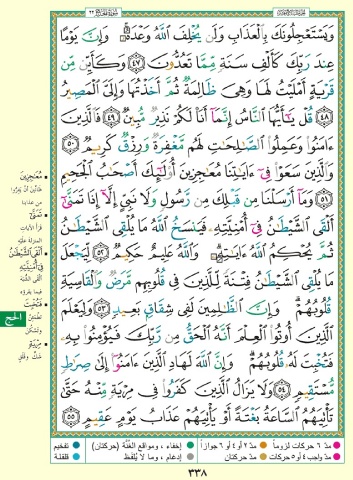 وَيَسْتَعْجِلُونَكَ بِالْعَذَابِ وَلَن يُخْلِفَ اللَّهُ وَعْدَهُ وَإِنَّ يَوْمًا
عِندَ رَبِّكَ كَأَلْفِ سَنَةٍ مِّمَّا تَعُدُّونَ ٤٧ وَكَأَيِّن مِّن
قَرْيَةٍ أَمْلَيْتُ لَهَا وَهِيَ ظَالِمَةٌ ثُمَّ أَخَذْتُهَا وَإِلَيَّ الْمَصِيرُ
٤٨ قُلْ يَٰأَيُّهَا النَّاسُ إِنَّمَا أَنَا لَكُمْ نَذِيرٌ مُّبِينٌ ٤٩ فَالَّذِينَ
ءَامَنُوا وَعَمِلُوا الصَّٰلِحَٰتِ لَهُم مَّغْفِرَةٌ وَرِزْقٌ كَرِيمٌ ٥٠
وَالَّذِينَ سَعَوْا فِي ءَايَٰتِنَا مُعَٰجِزِينَ أُولَٰئِكَ أَصْحَٰبُ الْجَحِيمِ
٥١ وَمَا أَرْسَلْنَا مِن قَبْلِكَ مِن رَّسُولٍ وَلَا نَبِيٍّ إِلَّا إِذَا تَمَنَّىٰ
أَلْقَى الشَّيْطَٰنُ فِي أُمْنِيَّتِهِ فَيَنسَخُ اللَّهُ مَا يُلْقِي الشَّيْطَٰنُ
ثُمَّ يُحْكِمُ اللَّهُ ءَايَٰتِهِ وَاللَّهُ عَلِيمٌ حَكِيمٌ ٥٢ لِّيَجْعَلَ
مَا يُلْقِي الشَّيْطَٰنُ فِتْنَةً لِّلَّذِينَ فِي قُلُوبِهِم مَّرَضٌ وَالْقَاسِيَةِ
قُلُوبُهُمْ وَإِنَّ الظَّٰلِمِينَ لَفِي شِقَاقٍ بَعِيدٍ ٥٣ وَلِيَعْلَمَ
الَّذِينَ أُوتُوا الْعِلْمَ أَنَّهُ الْحَقُّ مِن رَّبِّكَ فَيُؤْمِنُوا بِهِ
فَتُخْبِتَ لَهُ قُلُوبُهُمْ وَإِنَّ اللَّهَ لَهَادِ الَّذِينَ ءَامَنُوا إِلَىٰ صِرَٰطٍ
مُّسْتَقِيمٍ ٥٤ وَلَا يَزَالُ الَّذِينَ كَفَرُوا فِي مِرْيَةٍ مِّنْهُ حَتَّىٰ
تَأْتِيَهُمُ السَّاعَةُ بَغْتَةً أَوْ يَأْتِيَهُمْ عَذَابُ يَوْمٍ عَقِيمٍ
٥٥
مُعَٰجِزِينَ
تَمَنَّىٰ
قرأ الآيات
المنزلة عليه
أَلْقَى الشَّيْطَٰنُ
فِي أُمْنِيَّتِهِ
فَتُخْبِتَ
مِرْيَةٍ
الحج
مدّ ٦ حركات لزوماً
مدّ ٢ أو ٤ أو ٦ جوازاً
إخفاء، ومواقع الغُنَّة (حركتان)
تفخيم
مدّ واجب ٤ أو ٥ حركات
مدّ حركتان
إدغام، وما لا يُلفظ
قلقلة
٣٣٨